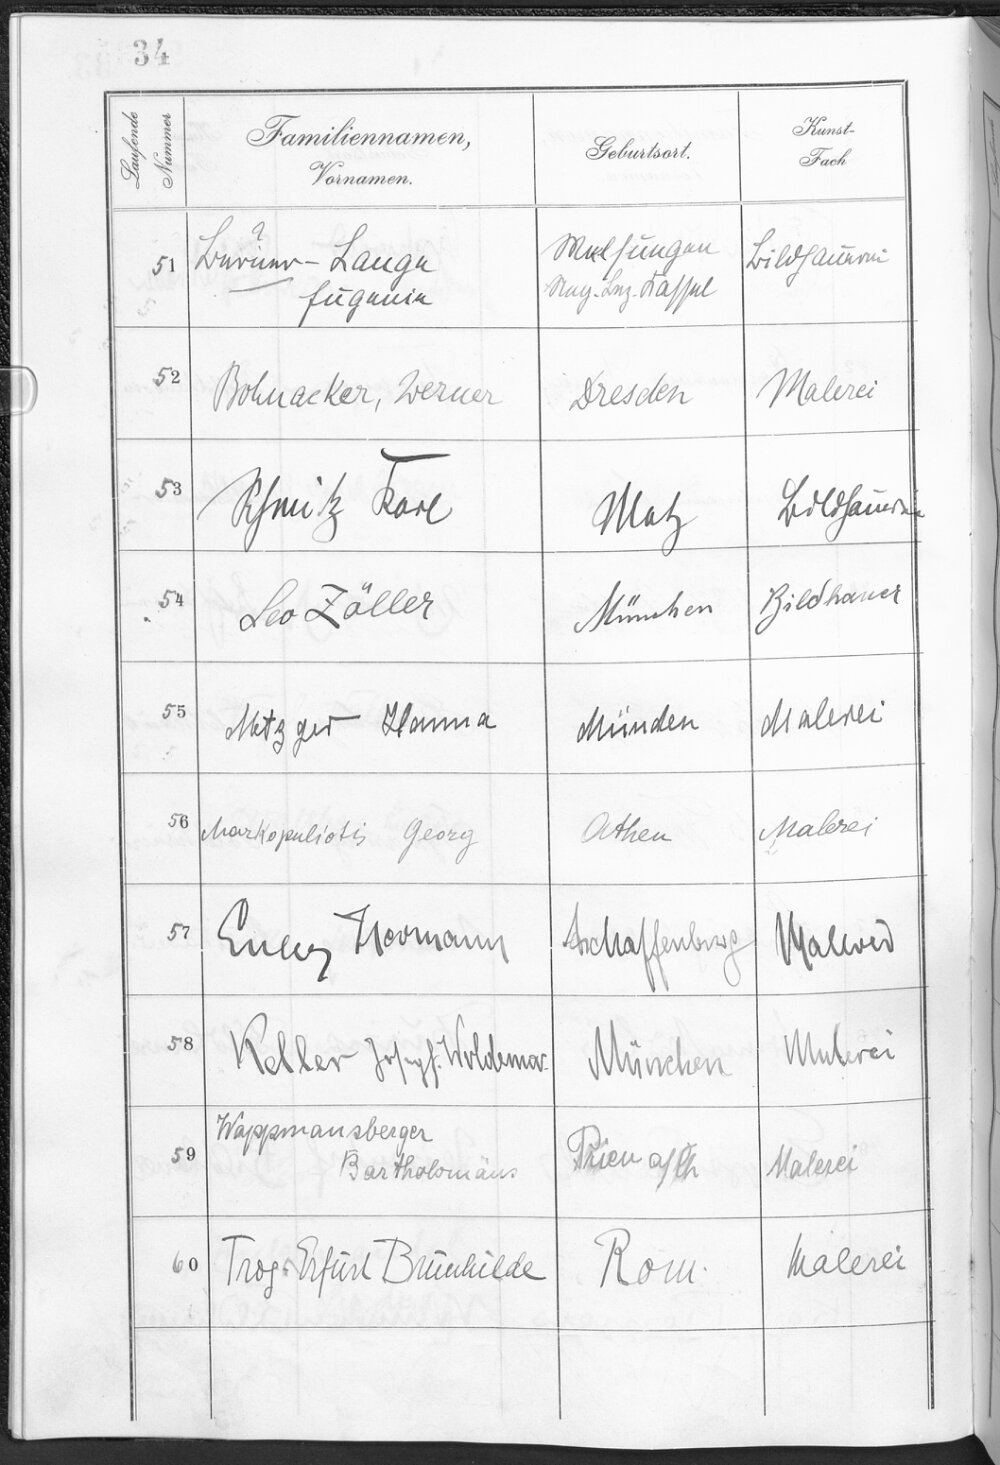 34
Laufende Nummer
Familiennamen,
Vornamen.
Geburtsort.
Kunst-
Fach
51 ? Lange Melsungen Bildhauerei
Eugenie Reg. Bez. Kassel
52 Bohnacker, Werner Dresden Malerei
53 Schmitz Karl Metz Bildhauerei
54 Leo Zöller München Bildhauer
55 Metzger Hanna München Malerei
56 Markopuliotis Georg Athen Malerei
57 Hermann Aschaffenburg Malerei
58 Keller Josef. Woldemar München Malerei
59 Wappmansberger
Bartholomäus Prien a/Ch Malerei
60 Trog-Erfurt Brunhilde Rom. Malerei